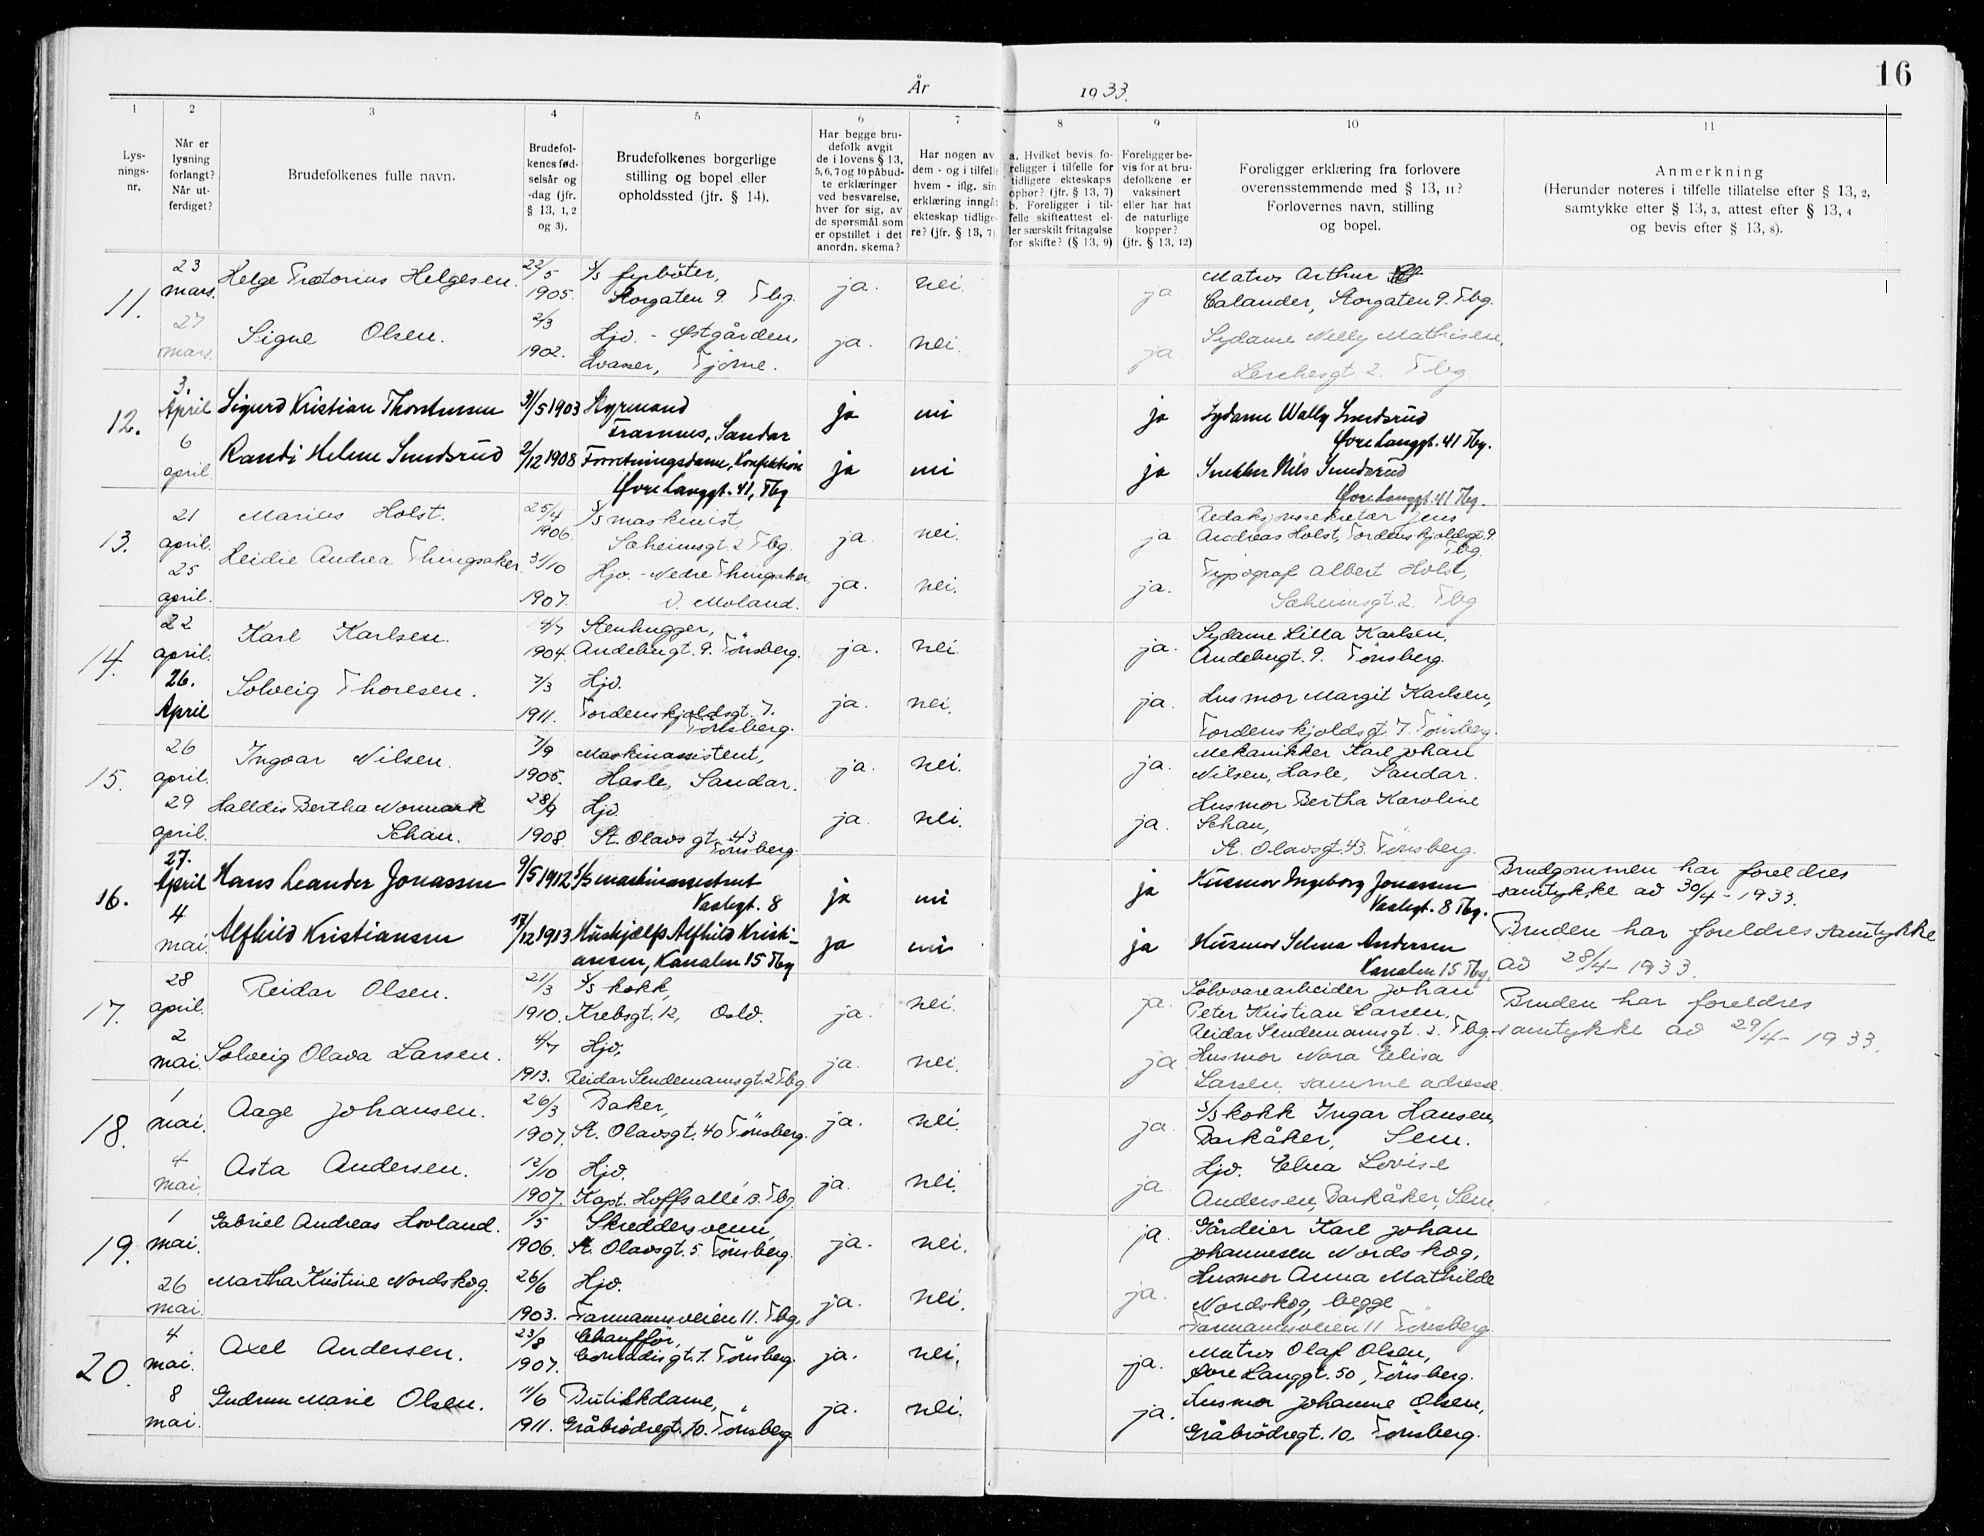 16
År 1933.
1 2 3 4 5 6 7 8 9 10 11
Lys-
nings-
nr.
Når er
lysning
forlangt?
Når ut-
ferdiget?
Brudefolkenes fulle navn.
Brudefol-
kenes fød-
selsår og
-dag (jfr.
§ 13, 1, 2
og 3).
Brudefolkenes borgerlige
stilling og bopel eller
opholdssted (jfr. § 14).
Har begge bru-
defolk avgit
de i lovens § 13,
5, 6, 7 og 10 påbud-
te erklæringer
ved besvarelse,
hver for sig, av
de spørsmål som
er opstillet i det
anordn. skema?
Har nogen av
dem - og i tilfelle
hvem - iflg. sin
erklæring inngåt
ekteskap tidlige-
re? (jfr. § 13, 7).
a. Hvilket bevis fo-
religger i tilfelle for
tidligere ekteskaps
ophør? (jfr. § 13, 7)
b. Foreligger i til-
felle skifteattest el-
ler særskilt fritagelse
for skifte? (§ 13, 9)
Foreligger be-
vis for at bru-
defolkene er
vaksinert
eller har hat
de naturlige
kopper?
(jfr. § 13, 12)
Foreligger erklæring fra forlovere
overensstemmende med § 13, 11?
Forlovernes navn, stilling
og bopel.
Anmerkning
(Herunder noteres i tilfelle tillatelse efter § 13, 2,
samtykke efter § 13, 3, attest efter § 13, 4
og bevis efter § 13, 8).
11.
23 mars.
Helge Prætorius Helgesen.
22/5 1905.
s/s fyrbøter,
Storgaten 9. Tbg.
ja. nei. ja
Matros Arthur
Calander, Storgaten 9. Tbg.
27 mars.
Signe Olsen.
2/3 1902.
Hjv. - Østgården,
Hvasser, Tjøme.
ja. nei. ja
Sydame Nelly Mathisen,
Lerchesgt. 2. Tbg.
12.
3. April
Sigurd Kristian Thorstensen
31/5 1903
Styrmand
Framnes, Sandar
ja nei ja
Sydame Wally Smedsrud
Øvre Langgt. 41 Tbg.
6 april
Randi Helene Smedsrud
9/12 1908
Forretningsdame, Konfektion
Øvre Langgt. 41, Tbg
ja nei ja
Snekker Nils Smedsrud
Øvre Langgt. 41 Tbg.
13.
21 april.
Marius Holst.
25/4 1906
s/s maskinist,
Sæheimsgt 2 Tbg.
ja. nei. ja.
Redaksjonssekretær Jens
Andreas Holst, Tordenskjoldsgt. 9
Tbg.
25 april.
Heidie Andrea Thingsaker
31/10 1907.
Hjv. - Nedre Thingsaker
V. Moland.
ja. nei. ja.
Typograf Albert Holst,
Sæheimsgt. 2. Tbg
14.
22 april.
Karl Karlsen.
4/7 1904.
Stenhugger,
Andebugt. 9. Tönsberg.
ja. nei. ja.
Sydame Lilla Karlsen,
Andebugt. 9. Tönsberg.
26. April
Solveig Thoresen.
7/3 1911.
Hjv.
Tordenskjoldsgt. 7.
Tönsberg.
ja. nei. ja.
Husmor Margit Karlsen,
Tordenskjoldsgt. 7. Tönsberg.
15.
26 april.
Ingvar Nilsen.
7/9 1905.
Maskinassistent,
Hasle, Sandar.
ja. nei. ja.
Mekanikker Karl Johan
Nilsen, Hasle, Sandar.
29 april.
Halldis Bertha Normark
Schau.
28/9 1908.
Hjv.
St. Olavs gt. 43
Tönsberg.
ja. nei. ja.
Husmor Bertha Karoline
Schau,
St. Olavsgt. 43. Tönsberg.
16.
27. April
Hans Leander Jonassen
9/5 1912
s/s maskinassistent
Vaslegt. 8
ja nei ja
Husmor Ingeborg Jonassen
Vaslegt. 8 Tbg.
Brudgommen har foreldres
samtykke av 30/4 - 1933.
4 mai.
Alfhild Kristiansen
17/12 1913
Hushjælp Alfhild Kristi-
ansen, Kanalen 15 Tbg
ja nei ja
Husmor Selma Andersen
Kanalen 15 Tbg.
Bruden har foreldres samtykke
av 28/4 - 1933.
17.
28 april.
Reidar Olsen.
21/3 1910.
s/s kokk,
Krebsgt. 12, Oslo.
ja. nei. ja.
Sölvvarearbeider Johan
Peter Kristian Larsen,
Reidar Sendemannsgt. 2. Tbg.
Bruden har foreldres
samtykke av 29/4 - 1933.
2 mai.
Solveig Olava Larsen.
4/7 1913.
Hjv.
Reidar Sendemannsgt. 2 Tbg
ja. nei. ja.
Husmor Nora Elisa
Larsen, samme adresse.
18.
1 mai.
Aage Johansen.
26/3 1907.
Baker,
St. Olavsgt. 40 Tönsberg.
ja. nei. ja
s/s kokk Ingar Hansen,
Barkåker, Sem.
4 mai.
Asta Andersen.
12/10 1907.
Hjv.
Kapt. Hoffs allé 13. Tbg.
ja. nei. ja
Hjv. Elna Lovise
Andersen, Barkåker, Sem
19.
1 mai.
Gabriel Andreas Hovland.
1/5 1906.
Skreddersvenn,
St. Olavsgt. 5. Tönsberg.
ja. nei. ja.
Gårdeier Karl Johan
Johannesen Nordskog,
26 mai.
Martha Kristine Nordskog.
26/6 1903.
Hjv.
Farmannsveien 11. Tbg.
ja. nei. ja.
Husmor Anna Mathilde
Nordskog, begge
Farmannsveien 11 Tönsberg.
20.
4 mai.
Axel Andersen.
23/8 1907.
Chaufför,
Conradisgt. 7. Tönsberg.
ja. nei. ja.
Matros Olaf Olsen,
Øvre Langgt. 50, Tönsberg.
8 mai.
Gudrun Marie Olsen.
11/6 1911.
Butikkdame,
Gråbrödregt. 10. Tönsberg
ja. nei. ja.
Husmor Johanne Olsen,
Gråbrödregt. 10. Tönsberg.